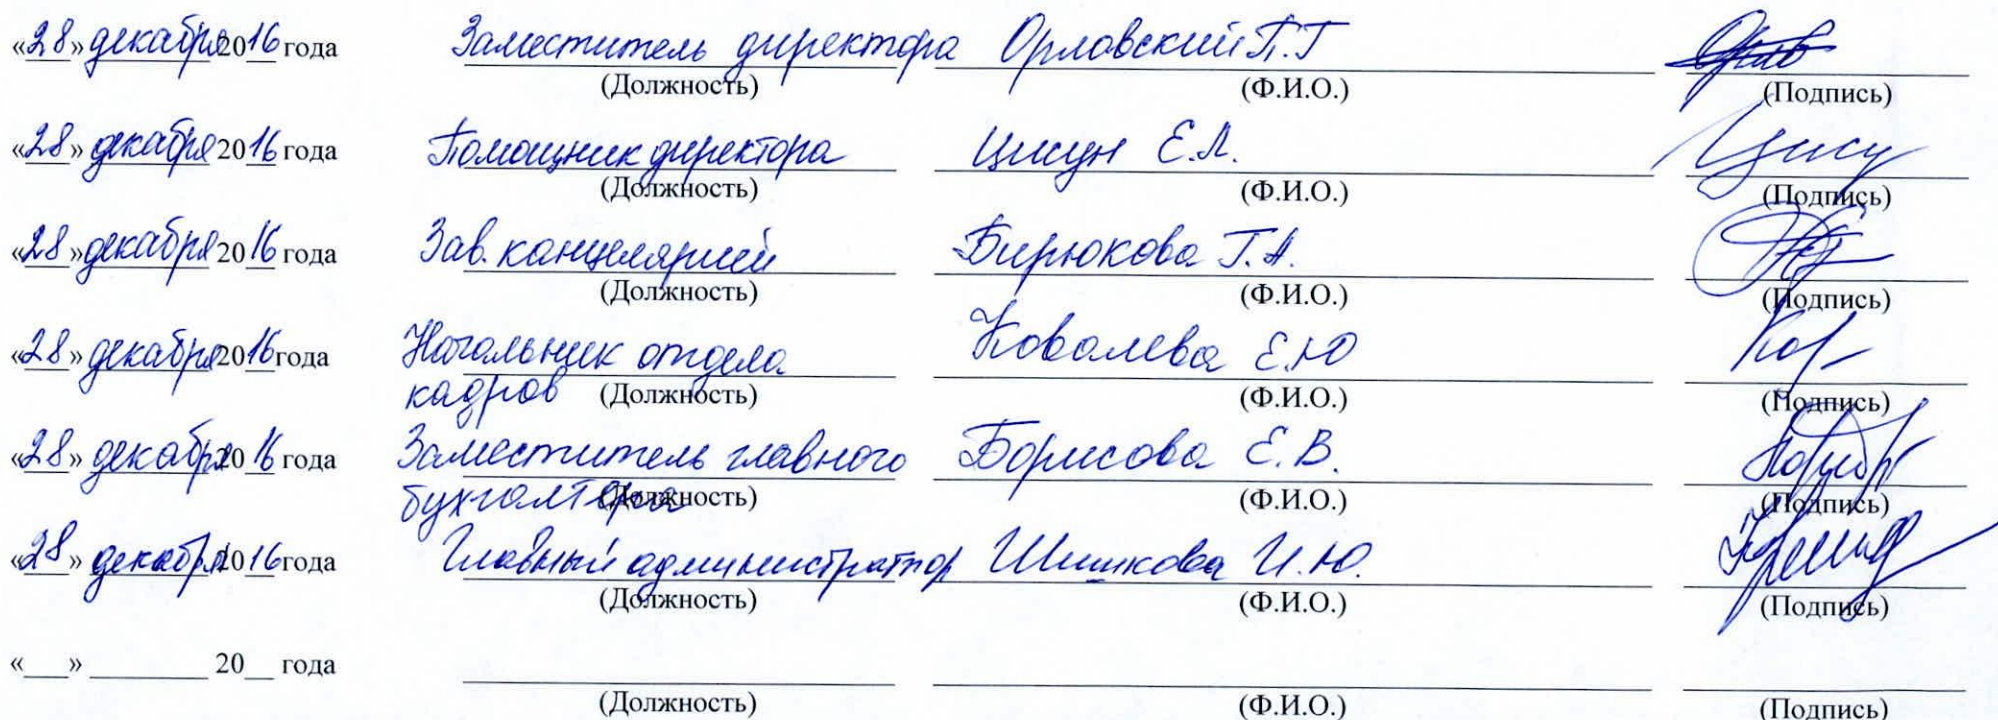 «28» декабря 2016 года Заместитель директора Орловский П.Г
(Должность) (Ф.И.О.) (Подпись)
«28» декабря 2016 года Помощник директора Цисун Е.Л.
(Должность) (Ф.И.О.) (Подпись)
«28» декабря 2016 года Зав. канцелярией Бирюкова Г.А.
(Должность) (Ф.И.О.) (Подпись)
«28» декабря 2016 года Начальник отдела Ковалева Е.Ю
кадров (Должность) (Ф.И.О.) (Подпись)
«28» декабря 2016 года Заместитель главного Борисова Е.В.
бухгалтера (Должность) (Ф.И.О.) (Подпись)
«28» декабря 2016 года Главный администратор Шишкова И.Ю.
(Должность) (Ф.И.О.) (Подпись)
«___» _________ 20__ года
(Должность) (Ф.И.О.) (Подпись)